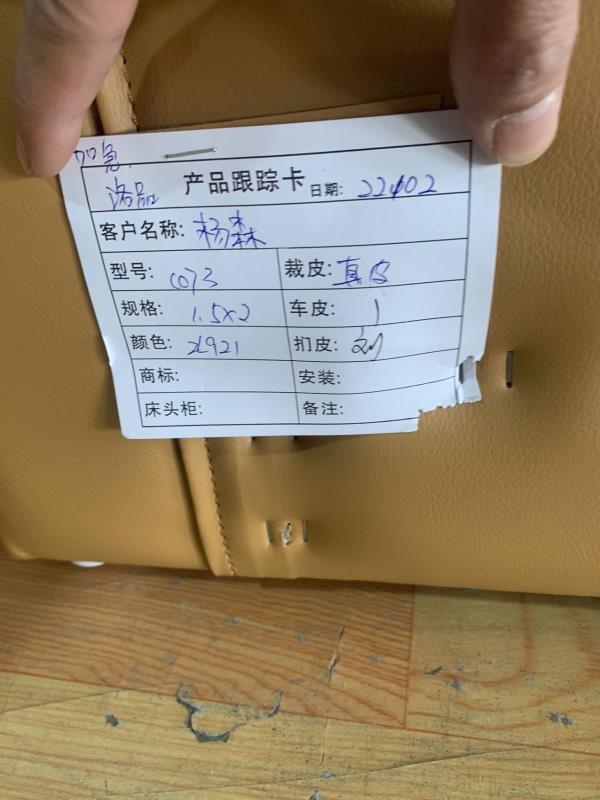 加急
洛品 产品跟踪卡 日期: 221002
客户名称: 杨森
型号: C073 裁皮: 真皮
规格: 1.5×2 车皮: 1
颜色: ZL921 扪皮: 刘
商标: 安装:
床头柜: 备注: